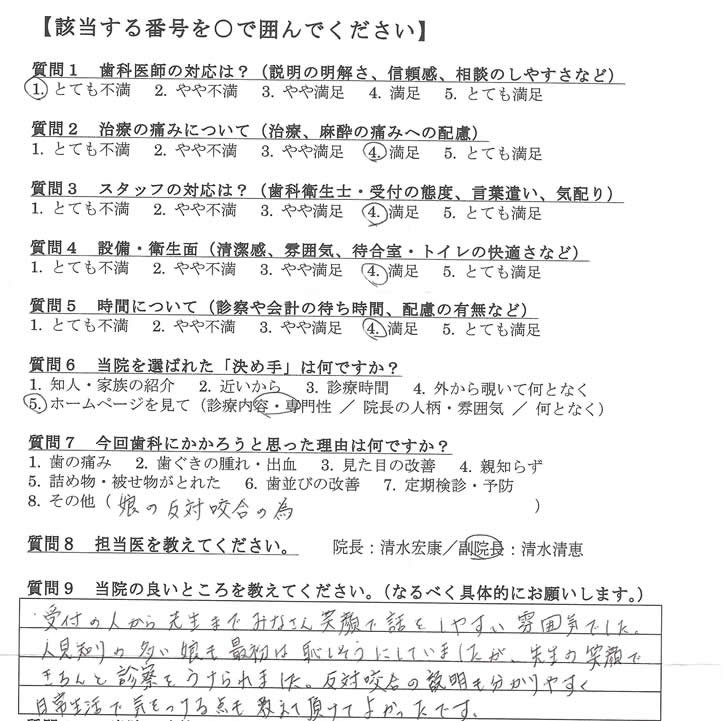 【該当する番号を〇で囲んでください】
質問1 歯科医師の対応は？（説明の明解さ、信頼感、相談のしやすさなど）
1. とても不満 2. やや不満 3. やや満足 4. 満足 5. とても満足
質問2 治療の痛みについて（治療、麻酔の痛みへの配慮）
1. とても不満 2. やや不満 3. やや満足 4. 満足 5. とても満足
質問3 スタッフの対応は？（歯科衛生士・受付の態度、言葉遣い、気配り）
1. とても不満 2. やや不満 3. やや満足 4. 満足 5. とても満足
質問4 設備・衛生面（清潔感、雰囲気、待合室・トイレの快適さなど）
1. とても不満 2. やや不満 3. やや満足 4. 満足 5. とても満足
質問5 時間について（診察や会計の待ち時間、配慮の有無など）
1. とても不満 2. やや不満 3. やや満足 4. 満足 5. とても満足
質問6 当院を選ばれた「決め手」は何ですか？
1. 知人・家族の紹介 2. 近いから 3. 診療時間 4. 外から覗いて何となく
5. ホームページを見て（診療内容・専門性 ／ 院長の人柄・雰囲気 ／ 何となく）
質問7 今回歯科にかかろうと思った理由は何ですか？
1. 歯の痛み 2. 歯ぐきの腫れ・出血 3. 見た目の改善 4. 親知らず
5. 詰め物・被せ物がとれた 6. 歯並びの改善 7. 定期検診・予防
8. その他（ 娘の反対咬合の為 ）
質問8 担当医を教えてください。 院長：清水宏康／副院長：清水清恵
質問9 当院の良いところを教えてください。（なるべく具体的にお願いします。）
・受付の人から先生までみなさん笑顔で話をしやすい雰囲気でした。
人見知りの多い娘も最初は恥しそうにしていましたが、先生の笑顔で
きちんと診察をうけられました。反対咬合の説明も分かりやすく
日常生活で気をつける点も教えて頂けてよかったです。